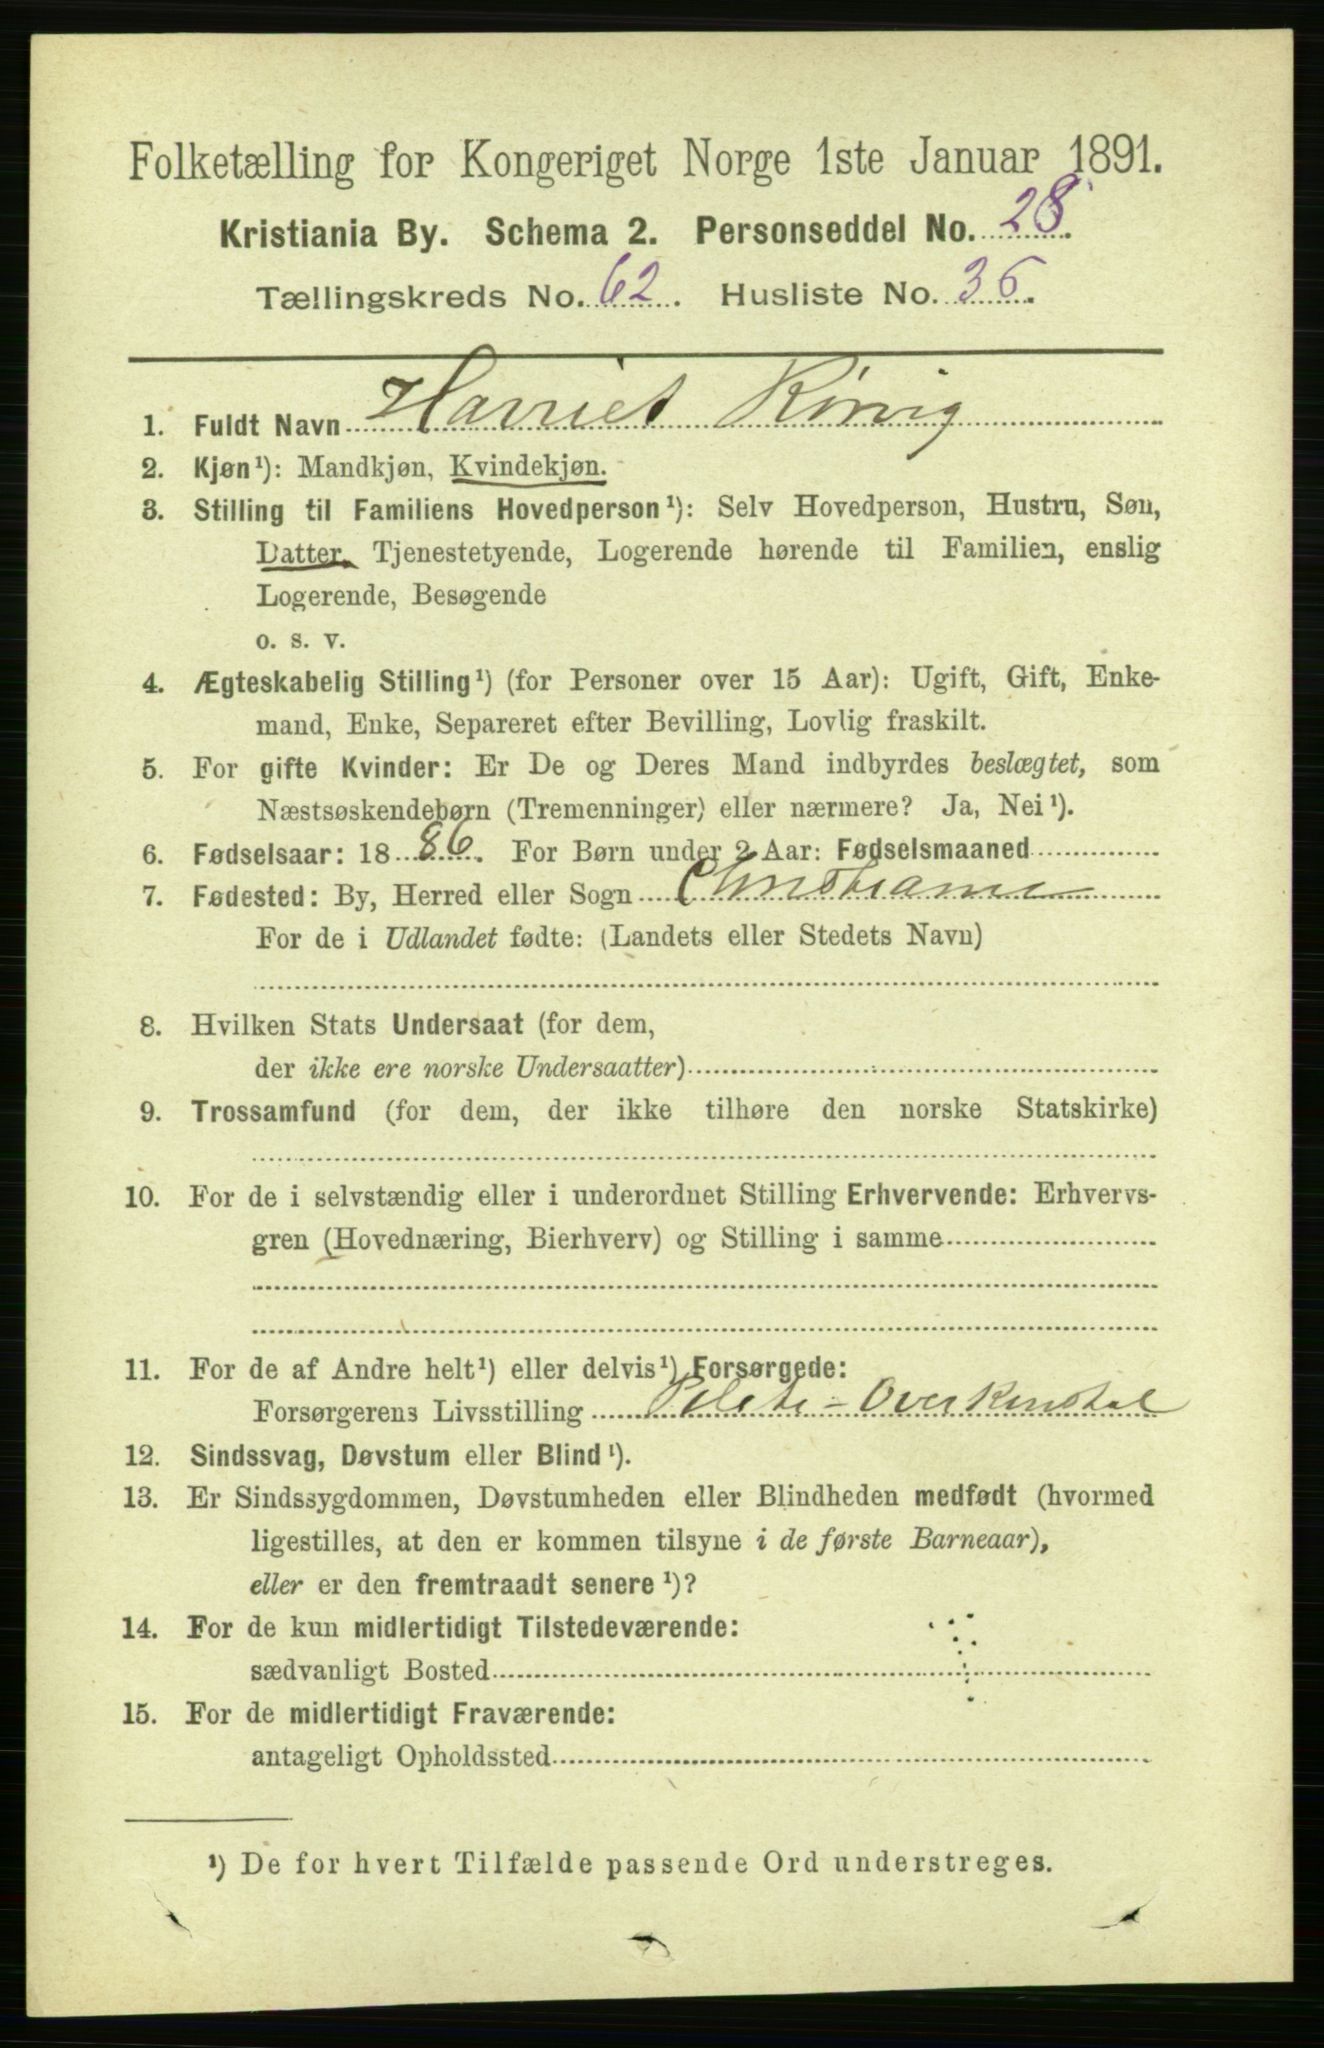 Folketælling for Kongeriget Norge 1ste Januar 1891.
Kristiania By. Schema 2. Personseddel No. 28.
Tællingskreds No. 62. Husliste No. 36.
1. Fuldt Navn Harriet Rörvig
2. Kjøn¹): Mandkjøn, Kvindekjøn.
3. Stilling til Familiens Hovedperson¹): Selv Hovedperson, Hustru, Søn,
Datter, Tjenestetyende, Logerende hørende til Familien, enslig
Logerende, Besøgende
o. s. v.
4. Ægteskabelig Stilling¹) (for Personer over 15 Aar): Ugift, Gift, Enke-
mand, Enke, Separeret efter Bevilling, Lovlig fraskilt.
5. For gifte Kvinder: Er De og Deres Mand indbyrdes beslægtet, som
Næstsøskendebørn (Tremenninger) eller nærmere? Ja, Nei¹).
6. Fødselsaar: 1886. For Børn under 2 Aar: Fødselsmaaned
7. Fødested: By, Herred eller Sogn Christiania
For de i Udlandet fødte: (Landets eller Stedets Navn)
8. Hvilken Stats Undersaat (for dem,
der ikke ere norske Undersaatter)
9. Trossamfund (for dem, der ikke tilhøre den norske Statskirke)
10. For de i selvstændig eller i underordnet Stilling Erhvervende: Erhvervs-
gren (Hovednæring, Bierhverv) og Stilling i samme
11. For de af Andre helt¹) eller delvis¹) Forsørgede:
Forsørgerens Livsstilling Politi-Overkonstabel
12. Sindssvag, Døvstum eller Blind¹).
13. Er Sindssygdommen, Døvstumheden eller Blindheden medfødt (hvormed
ligestilles, at den er kommen tilsyne i de første Barneaar),
eller er den fremtraadt senere¹)?
14. For de kun midlertidigt Tilstedeværende:
sædvanligt Bosted
15. For de midlertidigt Fraværende:
antageligt Opholdssted
¹) De for hvert Tilfælde passende Ord understreges.